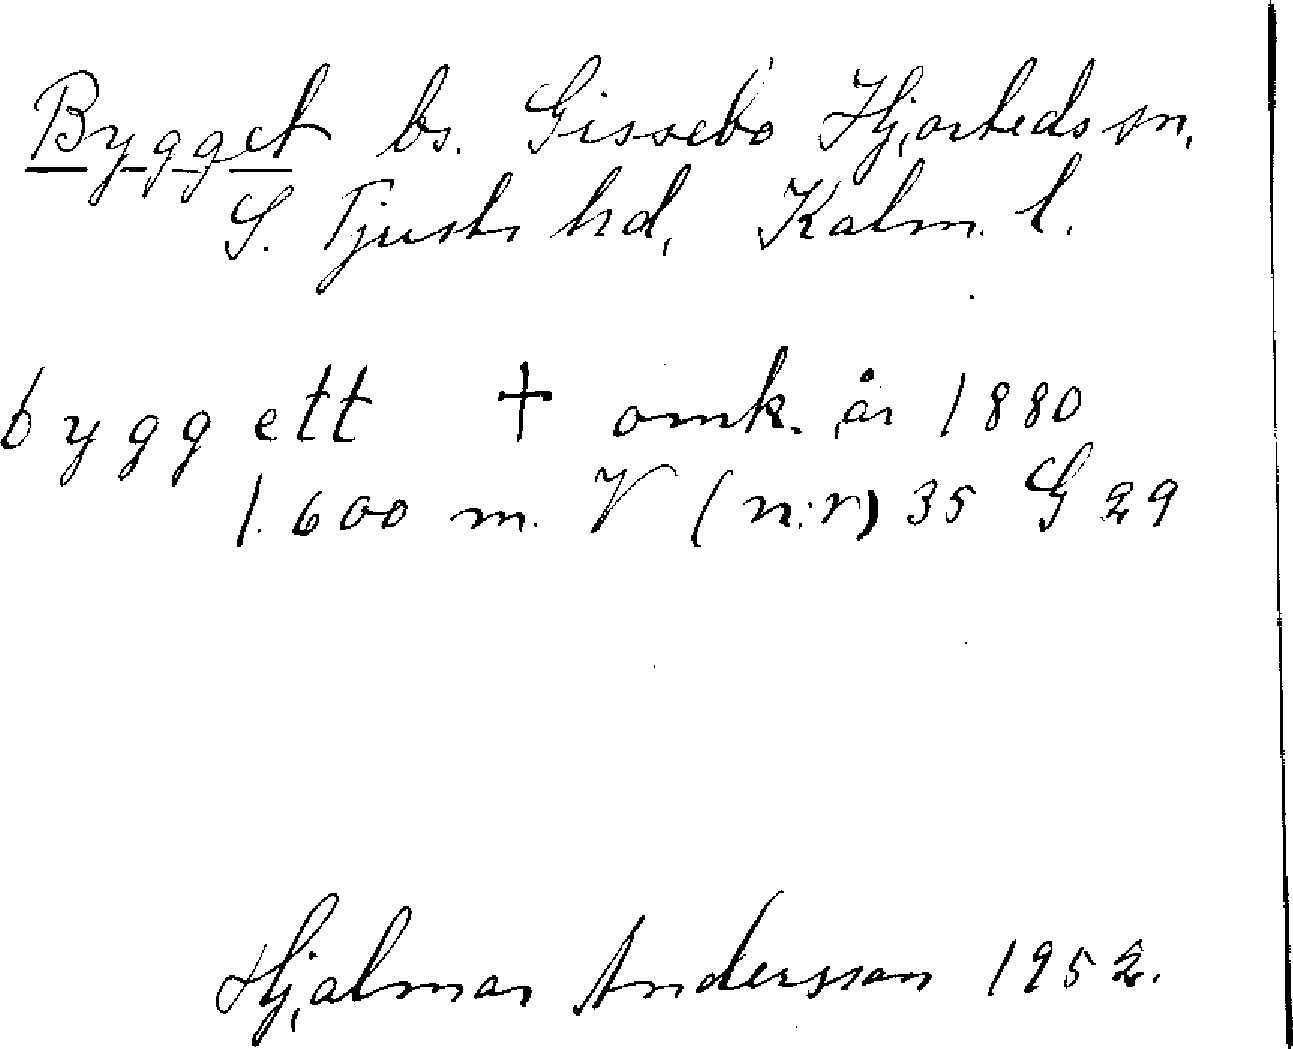 Bygget bs. Gissebo Hjorteds sn.
S. Tjusts hd, Kalm. l.
byggett † omk. år 1880
1.600 m. V (n:r) 35 G 29
Hjalmar Andersson 1952.